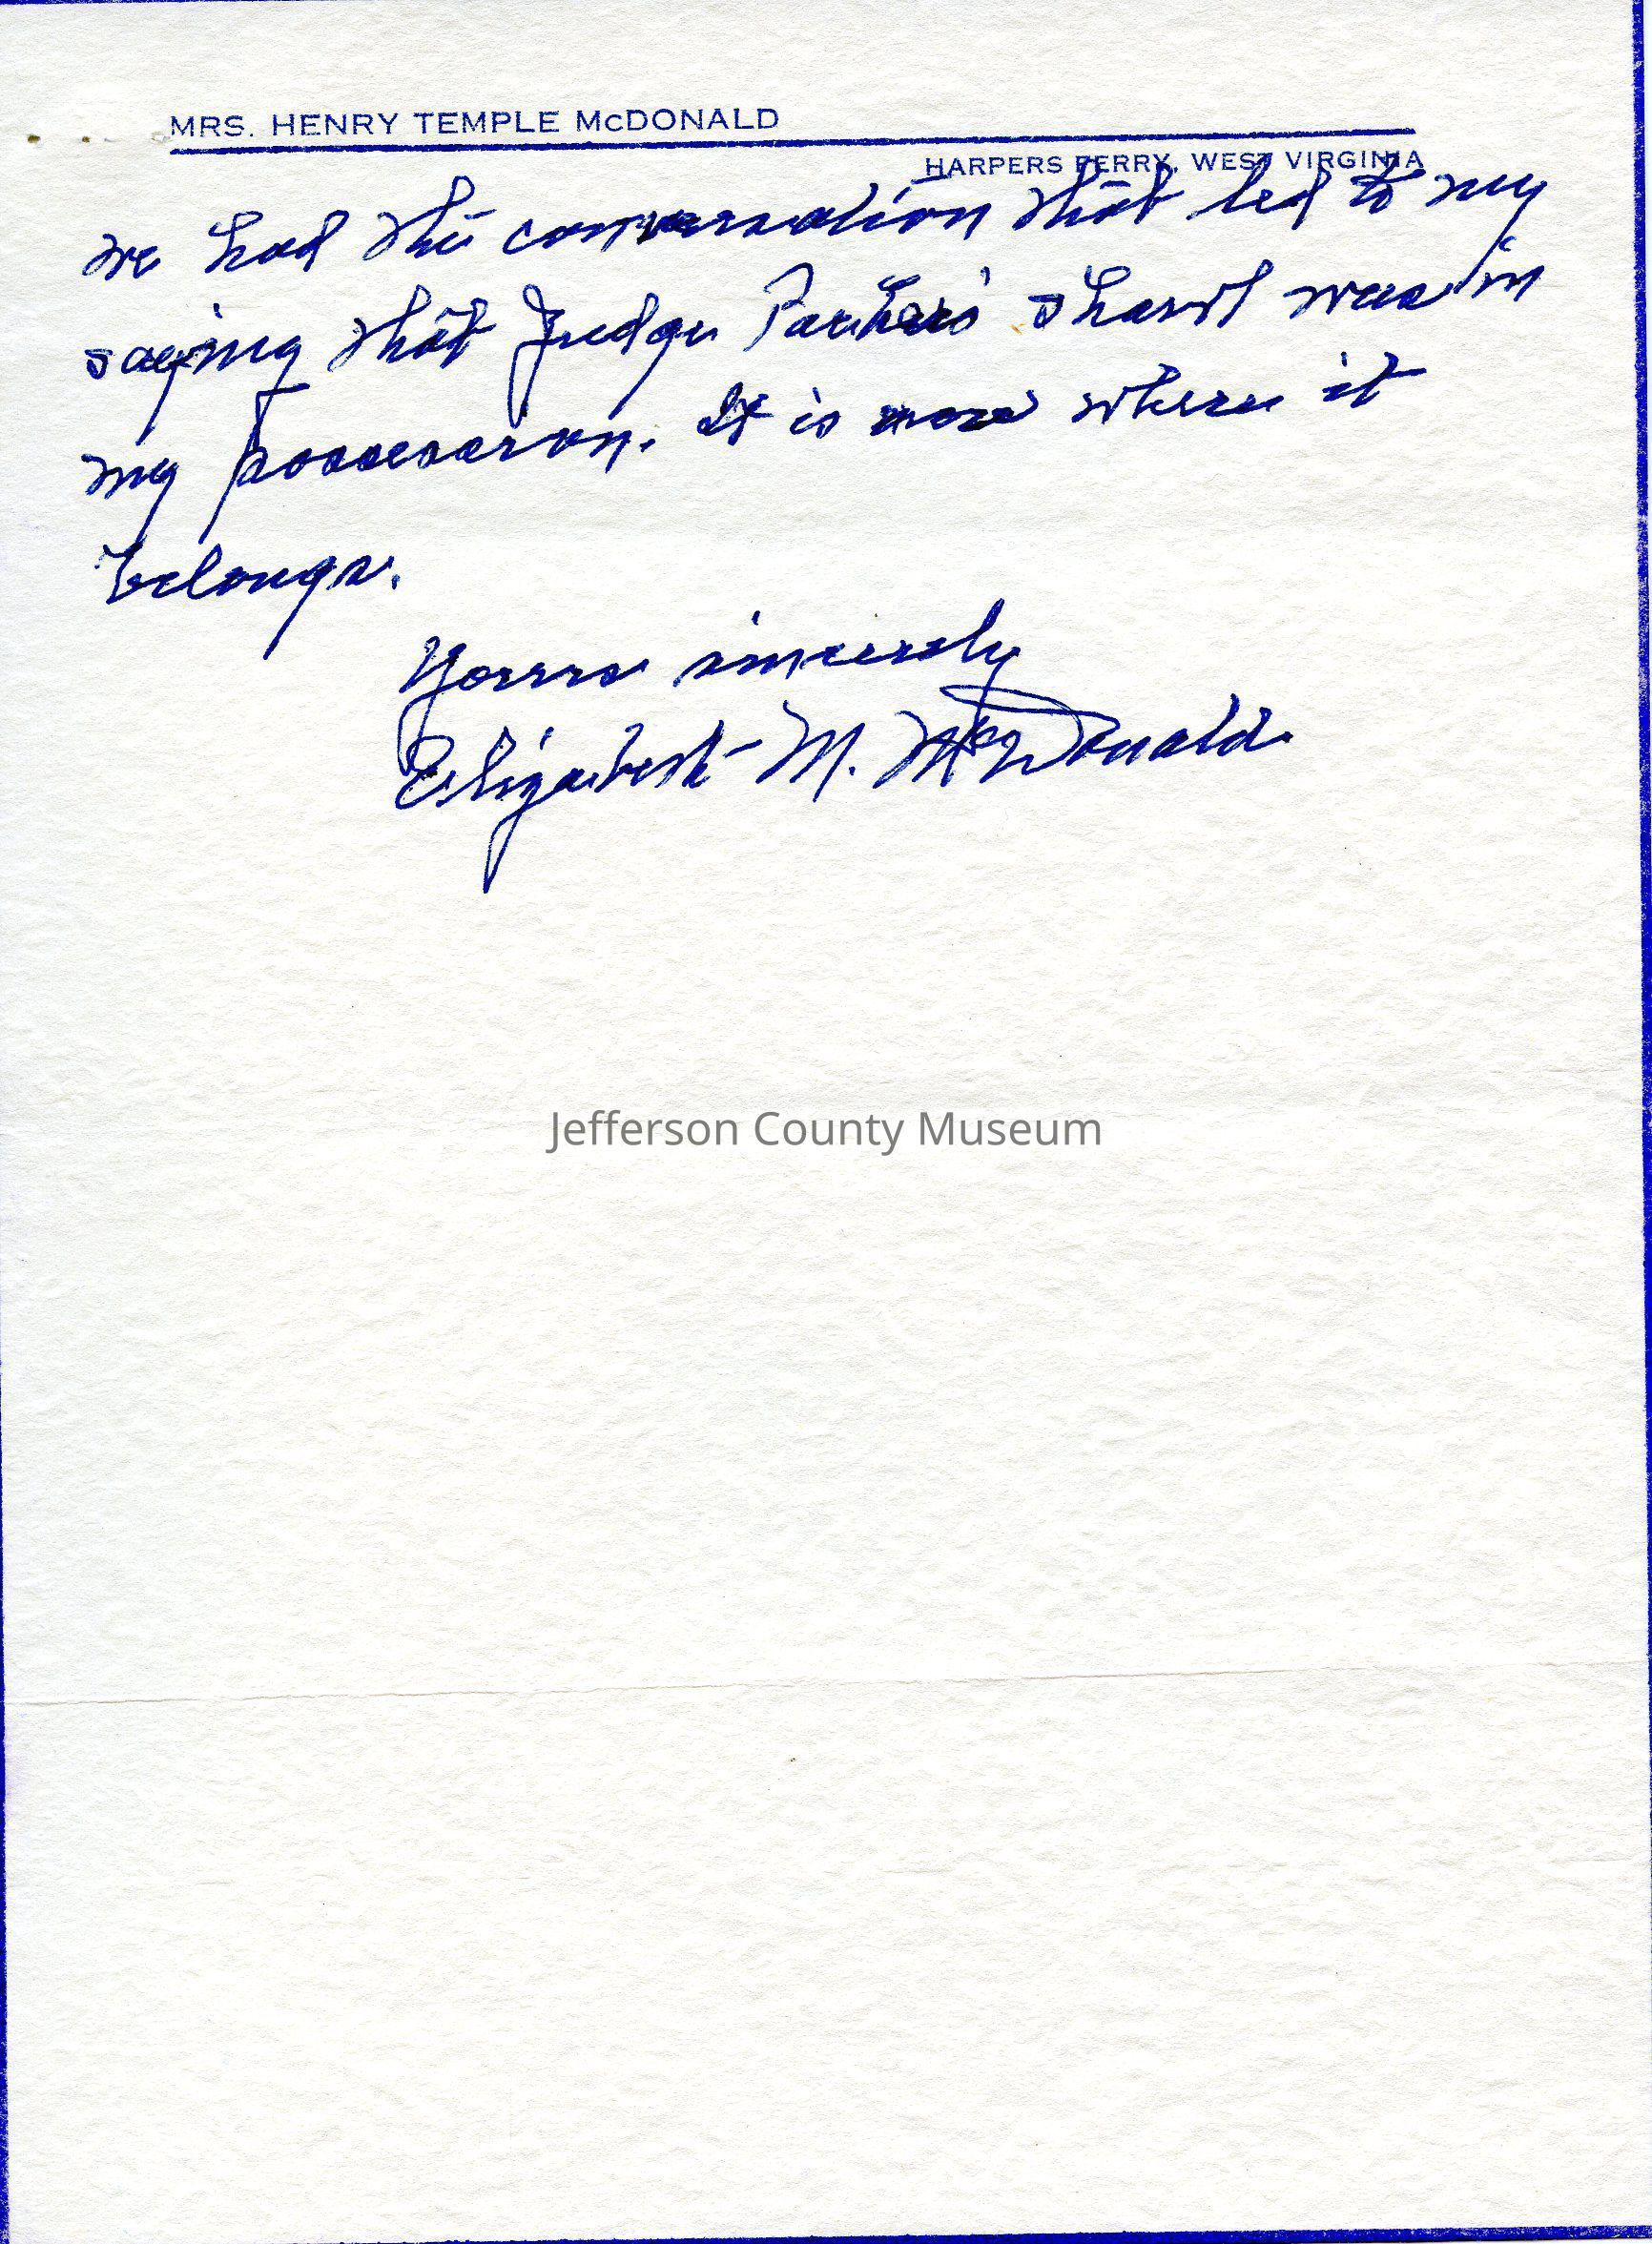 MRS. HENRY TEMPLE McDONALD
HARPERS FERRY, WEST VIRGINIA
we had the conversation that led to my
saying that Judge Parker's shawl was in
my possession. It is now where it
belongs.
Yours sincerely
Elizabeth M. McDonald
Jefferson County Museum